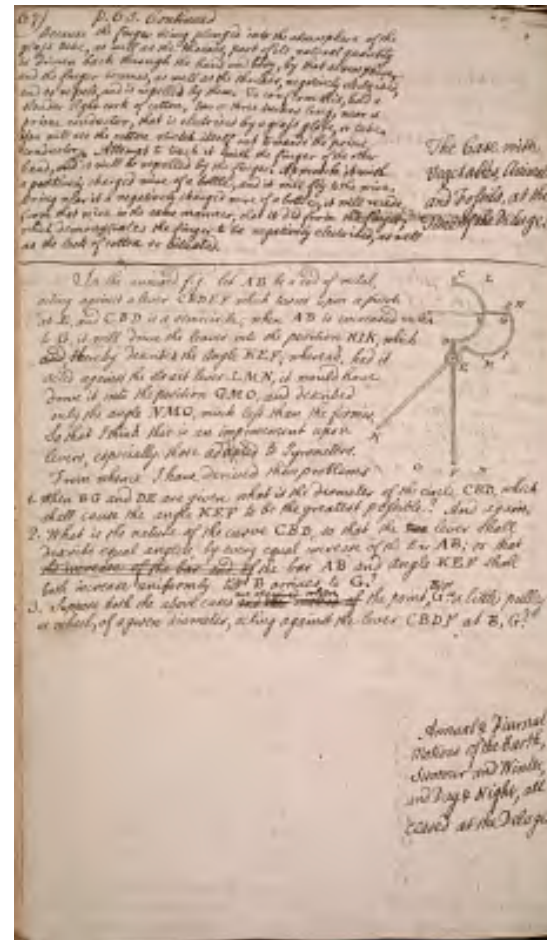 67) p. 65. Continued
Because the finger being plunged into the atmosphere of the
glass tube, as well as the thread, part of its natural quantity
is driven back through the hand and body, by that atmosphere,
and the finger becomes, as well as the thread, negatively electrised,
and so repels, and is repelled by them. To confirm this, hold a
slender light lock of cotton, two or three inches long, near a
prime conductor, that is electrised by a glass globe, or tube.
You will see the cotton stretch itself out towards the prime
conductor. Attempt to touch it with the finger of the other
hand, and it will be repelled by the finger. Approach it with
a positively charged wire of a bottle, and it will fly to the wire.
Bring near it a negatively charged wire of a bottle, it will recede
from that wire in the same manner, that it did from the finger,
which demonstrates the finger to be negatively electrised, as well
as the lock of cotton so situated.
The Case with
Vegetables, Animals
and Fossils, at the
Time of the Deluge.
In the annexed fig. let AB be a rod of metal,
acting against a lever CBDEF which turns upon a pivot
at E, and CBD is a semicircle; when AB is increased
to G, it will drive the leaver into the position HIK, which
and thereby describe the angle KEF; whereas, had it
acted against the strait lever LMN, it would have
drove it into the position GMO, and described
only the angle NMO, much less than the former.
So that I think this is an improvement upon
levers, especially those adapted to Pyrometers.
From whence I have derived these problems
1. When BG and DE are given what is the diameter of the circle CBD, which
shall cause the angle KEF to be the greatest possible? And again,
2. What is the nature of the curve CBD, so that the lever shall
describe equal angles, by every equal increase of the bar AB; or that
the increase of the bar and of the bar AB and angle KEF shall
both increase uniformly till B arrives to G?
3. Suppose both the above cases of the point, G a little pulley
or wheel, of a given diameter, acting against the lever CBDF at B, G?
C L
H
G
I
M
E
K
O F N
Annual & Diurnal
Motions of the Earth,
Summer and Winter,
and Day & Night, all
Ceased at the Deluge